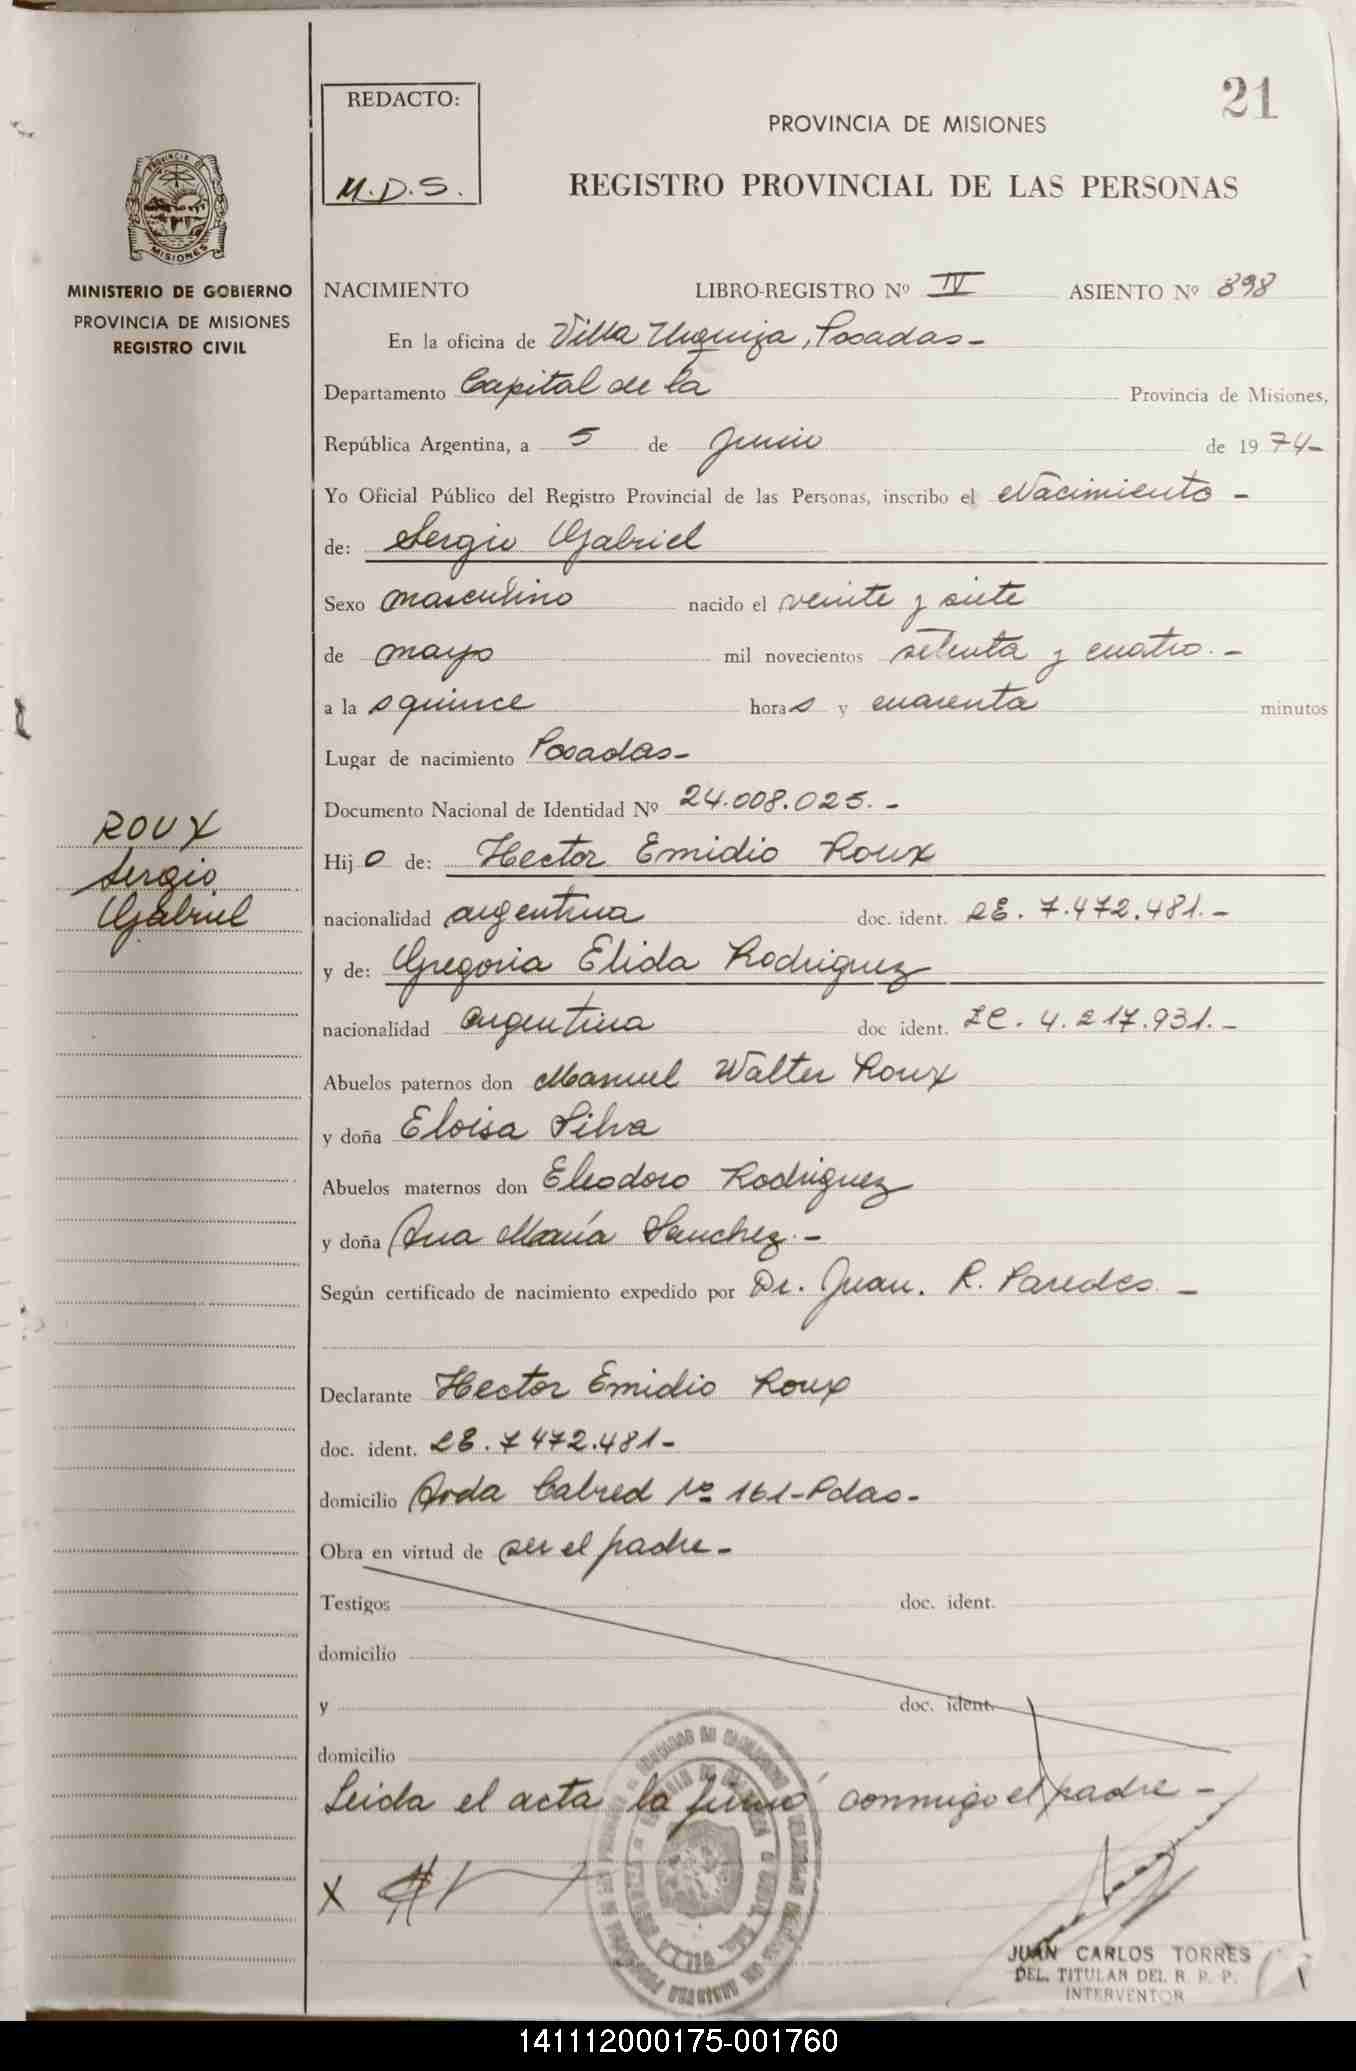 21
REDACTO:
M.D.S.
PROVINCIA DE MISIONES
REGISTRO PROVINCIAL DE LAS PERSONAS
PROVINCIA DE
MISIONES
MINISTERIO DE GOBIERNO
PROVINCIA DE MISIONES
REGISTRO CIVIL
NACIMIENTO LIBRO-REGISTRO Nº IV ASIENTO Nº 898
En la oficina de Villa Urquiza, Posadas-
Departamento Capital de la Provincia de Misiones,
República Argentina, a 5 de Junio de 1974-
Yo Oficial Público del Registro Provincial de las Personas, inscribo el Nacimiento -
de: Sergio Gabriel
Sexo masculino nacido el veinte y siete
de mayo mil novecientos setenta y cuatro.-
a las quince horas y cuarenta minutos
Lugar de nacimiento Posadas-
Documento Nacional de Identidad Nº 24.008.025.-
ROUX
Sergio
Gabriel
Hijo de: Hector Emidio Roux
nacionalidad argentina doc. ident. LE. 7.472.481.-
y de: Gregoria Elida Rodriguez
nacionalidad argentina doc ident. LC. 4.217.931.-
Abuelos paternos don Manuel Walter Roux
y doña Eloisa Silva
Abuelos maternos don Eleodoro Rodriguez
y doña Ana María Sanchez.-
Según certificado de nacimiento expedido por Dr. Juan. R. Paredes. -
Declarante Hector Emidio Roux
doc. ident. LE. 7 472.481-
domicilio Avda Cabred Nº 161-Pdas-
Obra en virtud de ser el padre-
Testigos doc. ident.
domicilio
y doc. ident.
domicilio
Leida el acta la firmó conmigo el padre-
X
JUAN CARLOS TORRES
DEL. TITULAR DEL R. P. P.
INTERVENTOR
141112000175-001760